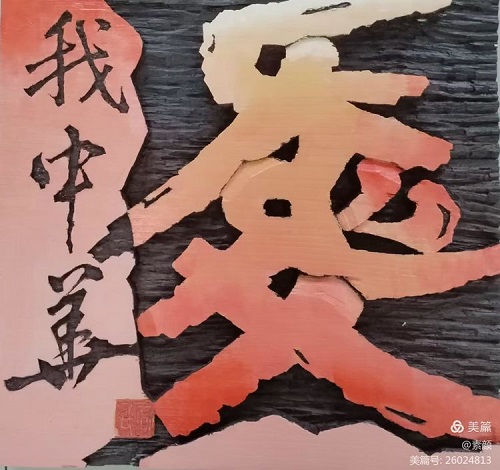 愛
我中華
美篇
@素颜
美篇号: 26024813